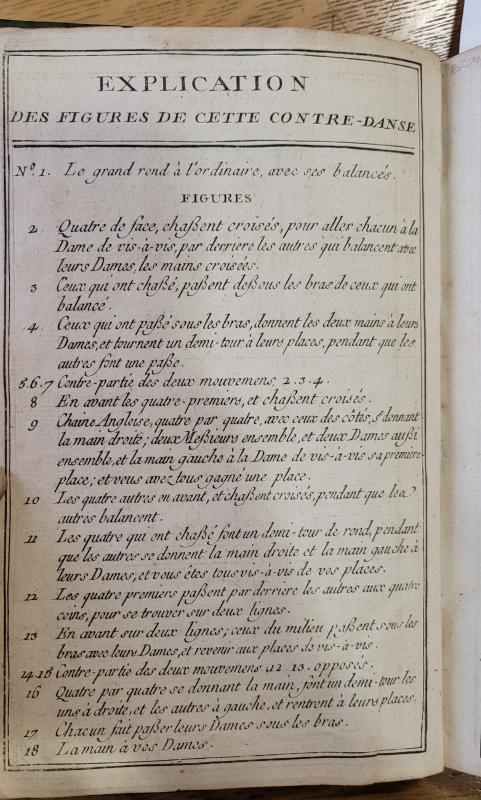 EXPLICATION
DES FIGURES DE CETTE CONTRE-DANSE
Nº. 1. Le grand rond à l'ordinaire, avec ses balancés.
FIGURES
2 Quatre de face, chaßent croisés, pour aller chacun à la
Dame de vis-à-vis, par derriere les autres qui balancent avec
leurs Dames, les mains croisées.
3 Ceux qui ont chaßé, paßent deßous les bras de ceux qui ont
balancé.
4 Ceux qui ont paßé sous les bras, donnent les deux mains à leurs
Dames, et tournent un demi-tour à leurs places, pendant que les
autres font une paße.
5.6.7 Contre-partie des deux mouvemens, 2.3.4.
8 En avant les quatre-premiers, et chaßent croisés.
9 Chaine Angloise, quatre par quatre, avec ceux des côtés, se donnant
la main droite; deux Meßieurs ensemble, et deux Dames außi
ensemble, et la main gauche à la Dame de vis-à-vis sa premiere
place; et vous avez tous gagné une place.
10 Les quatre autres en avant, et chaßent croisés, pendant que les
autres balancent.
11 Les quatre qui ont chaßé font un demi-tour de rond, pendant
que les autres se donnent la main droite et la main gauche à
leurs Dames, et vous êtes tous vis-à-vis de vos places.
12 Les quatre premiers paßent par derriere les autres aux quatre
coins, pour se trouver sur deux lignes.
13 En avant sur deux lignes; ceux du milieu paßent sous les
bras avec leurs Dames, et revenir aux places de vis-à-vis.
14.15 Contre-partie des deux mouvemens 12 13. opposés.
16 Quatre par quatre se donnant la main, font un demi-tour les
uns à droite, et les autres à gauche, et rentrent à leurs places.
17 Chacun fait paßer leurs Dames sous les bras.
18 La main à vos Dames.